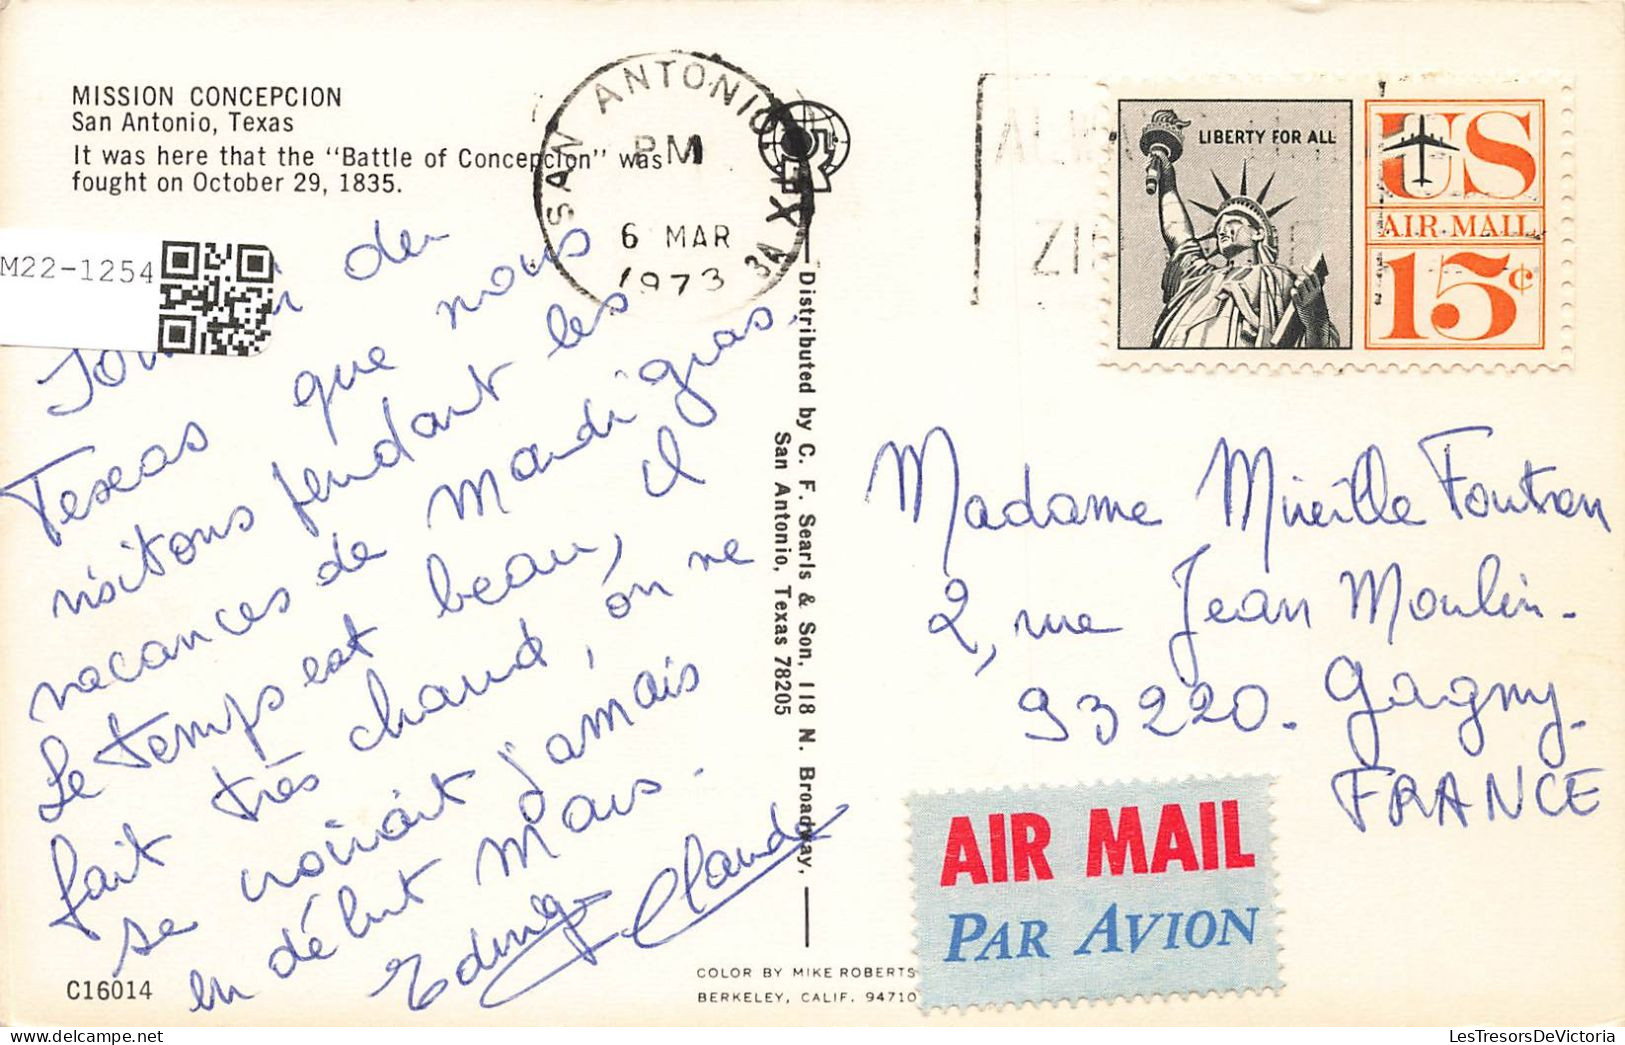 MISSION CONCEPCION
San Antonio, Texas
It was here that the "Battle of Concepcion" was
fought on October 29, 1835.
M22-1254
de
Texas que nous
visitons pendant les
vacances de Mardi gras.
Le temps est beau, il
fait très chaud, on ne
se croirait jamais
en début Mars.
Claude
C16014
SAN ANTONIO, TX
PM
6 MAR
1973
Distributed by C. F. Searls & Son, 118 N. Broadway,
San Antonio, Texas 78205
COLOR BY MIKE ROBERTS
BERKELEY, CALIF. 94710
LIBERTY FOR ALL
US
AIR MAIL
15¢
Madame Mireille
2, rue Jean Moulin.
93220. Gagny.
FRANCE
AIR MAIL
PAR AVION
LesTresorsDeVictoria